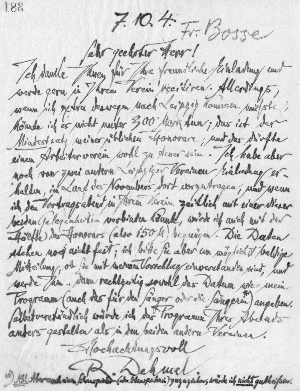 188
7.10.4.
Fr. Bosse
Sehr geehrter Herr!
Ich danke Ihnen für Ihre freundliche Einladung und
werde gern in Ihrem Verein recitiren. Allerdings,
wenn ich extra deswegen nach Leipzig kommen müßte,
könnte ich es nicht unter 300 Mark tun; das ist der
Mindestsatz meiner üblichen Honorare, und der dürfte
einem Arbeiterverein wohl zu teuer sein. Ich habe aber
noch von zwei andern Leipziger Vereinen Einladung er-
halten, im Lauf des Novembers dort vorzutragen, und wenn
ich den Vortragsabend in Ihrem Verein zeitlich mit einer dieser
beiden Gelegenheiten verbinden könnte, würde ich mich mit der
Hälfte des Honorars (also 150 M) begnügen. Die Daten
stehen noch nicht fest; ich bitte Sie aber um möglichst baldige
Mitteilung, ob Sie mit meinem Vorschlag einverstanden sind, und
werde Ihnen dann rechtzeitig sowohl das Datum wie mein
Programm (auch das für den Sänger oder die Sängerin) angeben.
Selbstverständlich würde ich das Programm Ihres Abends
anders gestalten als in den beiden andern Vereinen.
Hochachtungsvoll
R. Dehmel
würde ich nicht gutheißen.